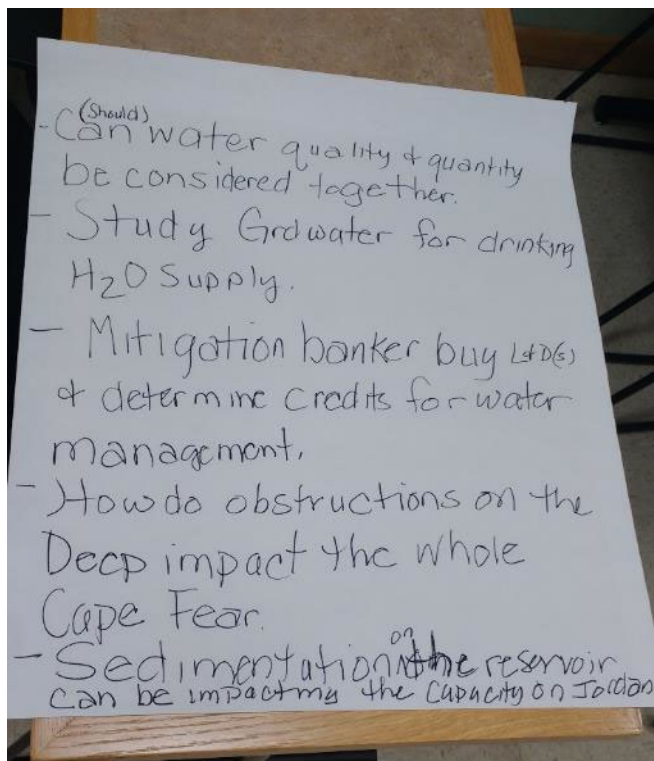 (Should)
- Can water quality & quantity
be considered together.
- Study Grdwater for drinking
H2O Supply.
- Mitigation banker buy L&D(s)
& determine credits for water
management.
- How do obstructions on the
Deep impact the whole
Cape Fear.
on
- Sedimentation the reservoir
can be impacting the capacity on Jordan